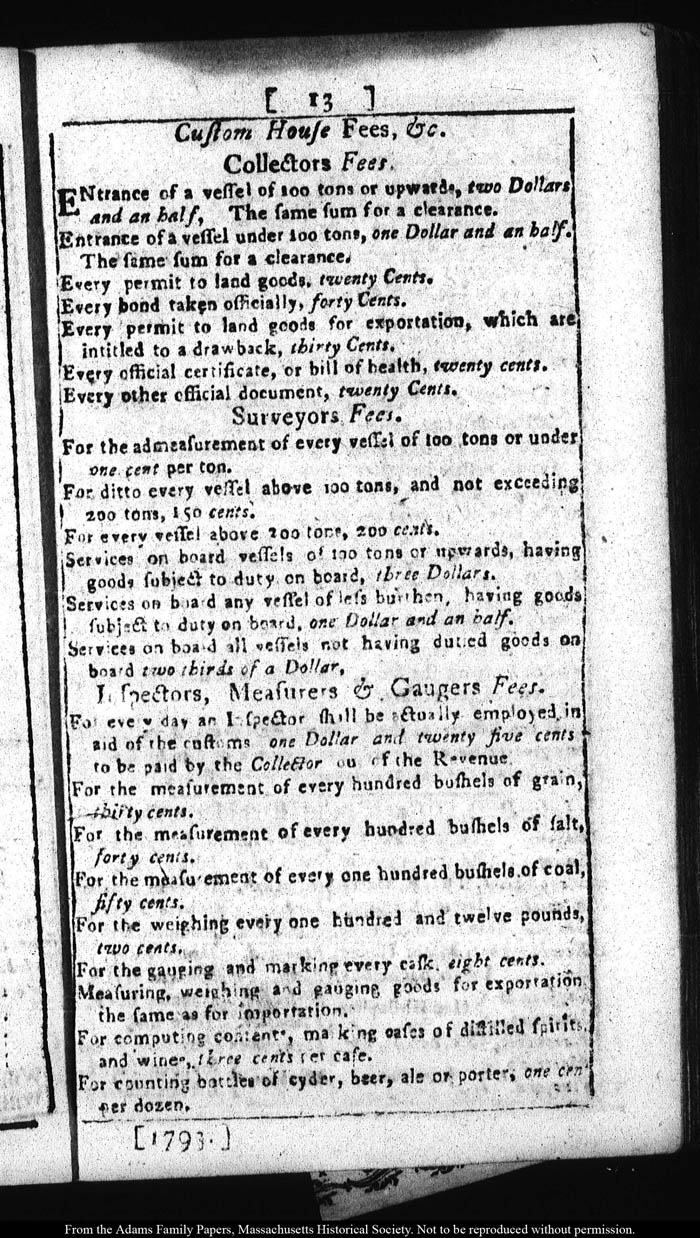 [ 13 ]
Cuſtom Houſe Fees, &c.
Collectors Fees.
ENtrance of a veſſel of 100 tons or upwards, two Dollars
and an half, The ſame ſum for a clearance.
Entrance of a veſſel under 100 tons, one Dollar and an half.
The ſame ſum for a clearance.
Every permit to land goods, twenty Cents.
Every bond taken officially, forty Cents.
Every permit to land goods for exportation, which are
intitled to a drawback, thirty Cents.
Every official certificate, or bill of health, twenty cents.
Every other official document, twenty Cents.
Surveyors Fees.
For the admeaſurement of every veſſel of 100 tons or under
one cent per ton.
For ditto every veſſel above 100 tons, and not exceeding
200 tons, 150 cents.
For every veſſel above 200 tons, 200 cents.
Services on board veſſels of 100 tons or upwards, having
goods ſubject to duty on board, three Dollars.
Services on board any veſſel of leſs burthen, having goods
ſubject to duty on board, one Dollar and an half.
Services on board all veſſels not having dutied goods on
board two thirds of a Dollar,
Inſpectors, Meaſurers & Gaugers Fees.
For every day an Inſpector ſhall be actually employed in
aid of the cuſtoms one Dollar and twenty five cents
to be paid by the Collector ou of the Revenue
For the meaſurement of every hundred buſhels of grain,
thirty cents.
For the meaſurement of every hundred buſhels of ſalt,
forty cents.
For the meaſurement of every one hundred buſhels of coal,
fifty cents.
For the weighing every one hundred and twelve pounds,
two cents.
For the gauging and marking every caſk, eight cents.
Meaſuring, weighing and gauging goods for exportation
the ſame as for importation.
For computing contents, making caſes of diſtilled ſpirits,
and wines, three cents per caſe.
For counting bottles of cyder, beer, ale or porter, one cent
per dozen.
[1793.]
From the Adams Family Papers, Massachusetts Historical Society. Not to be reproduced without permission.